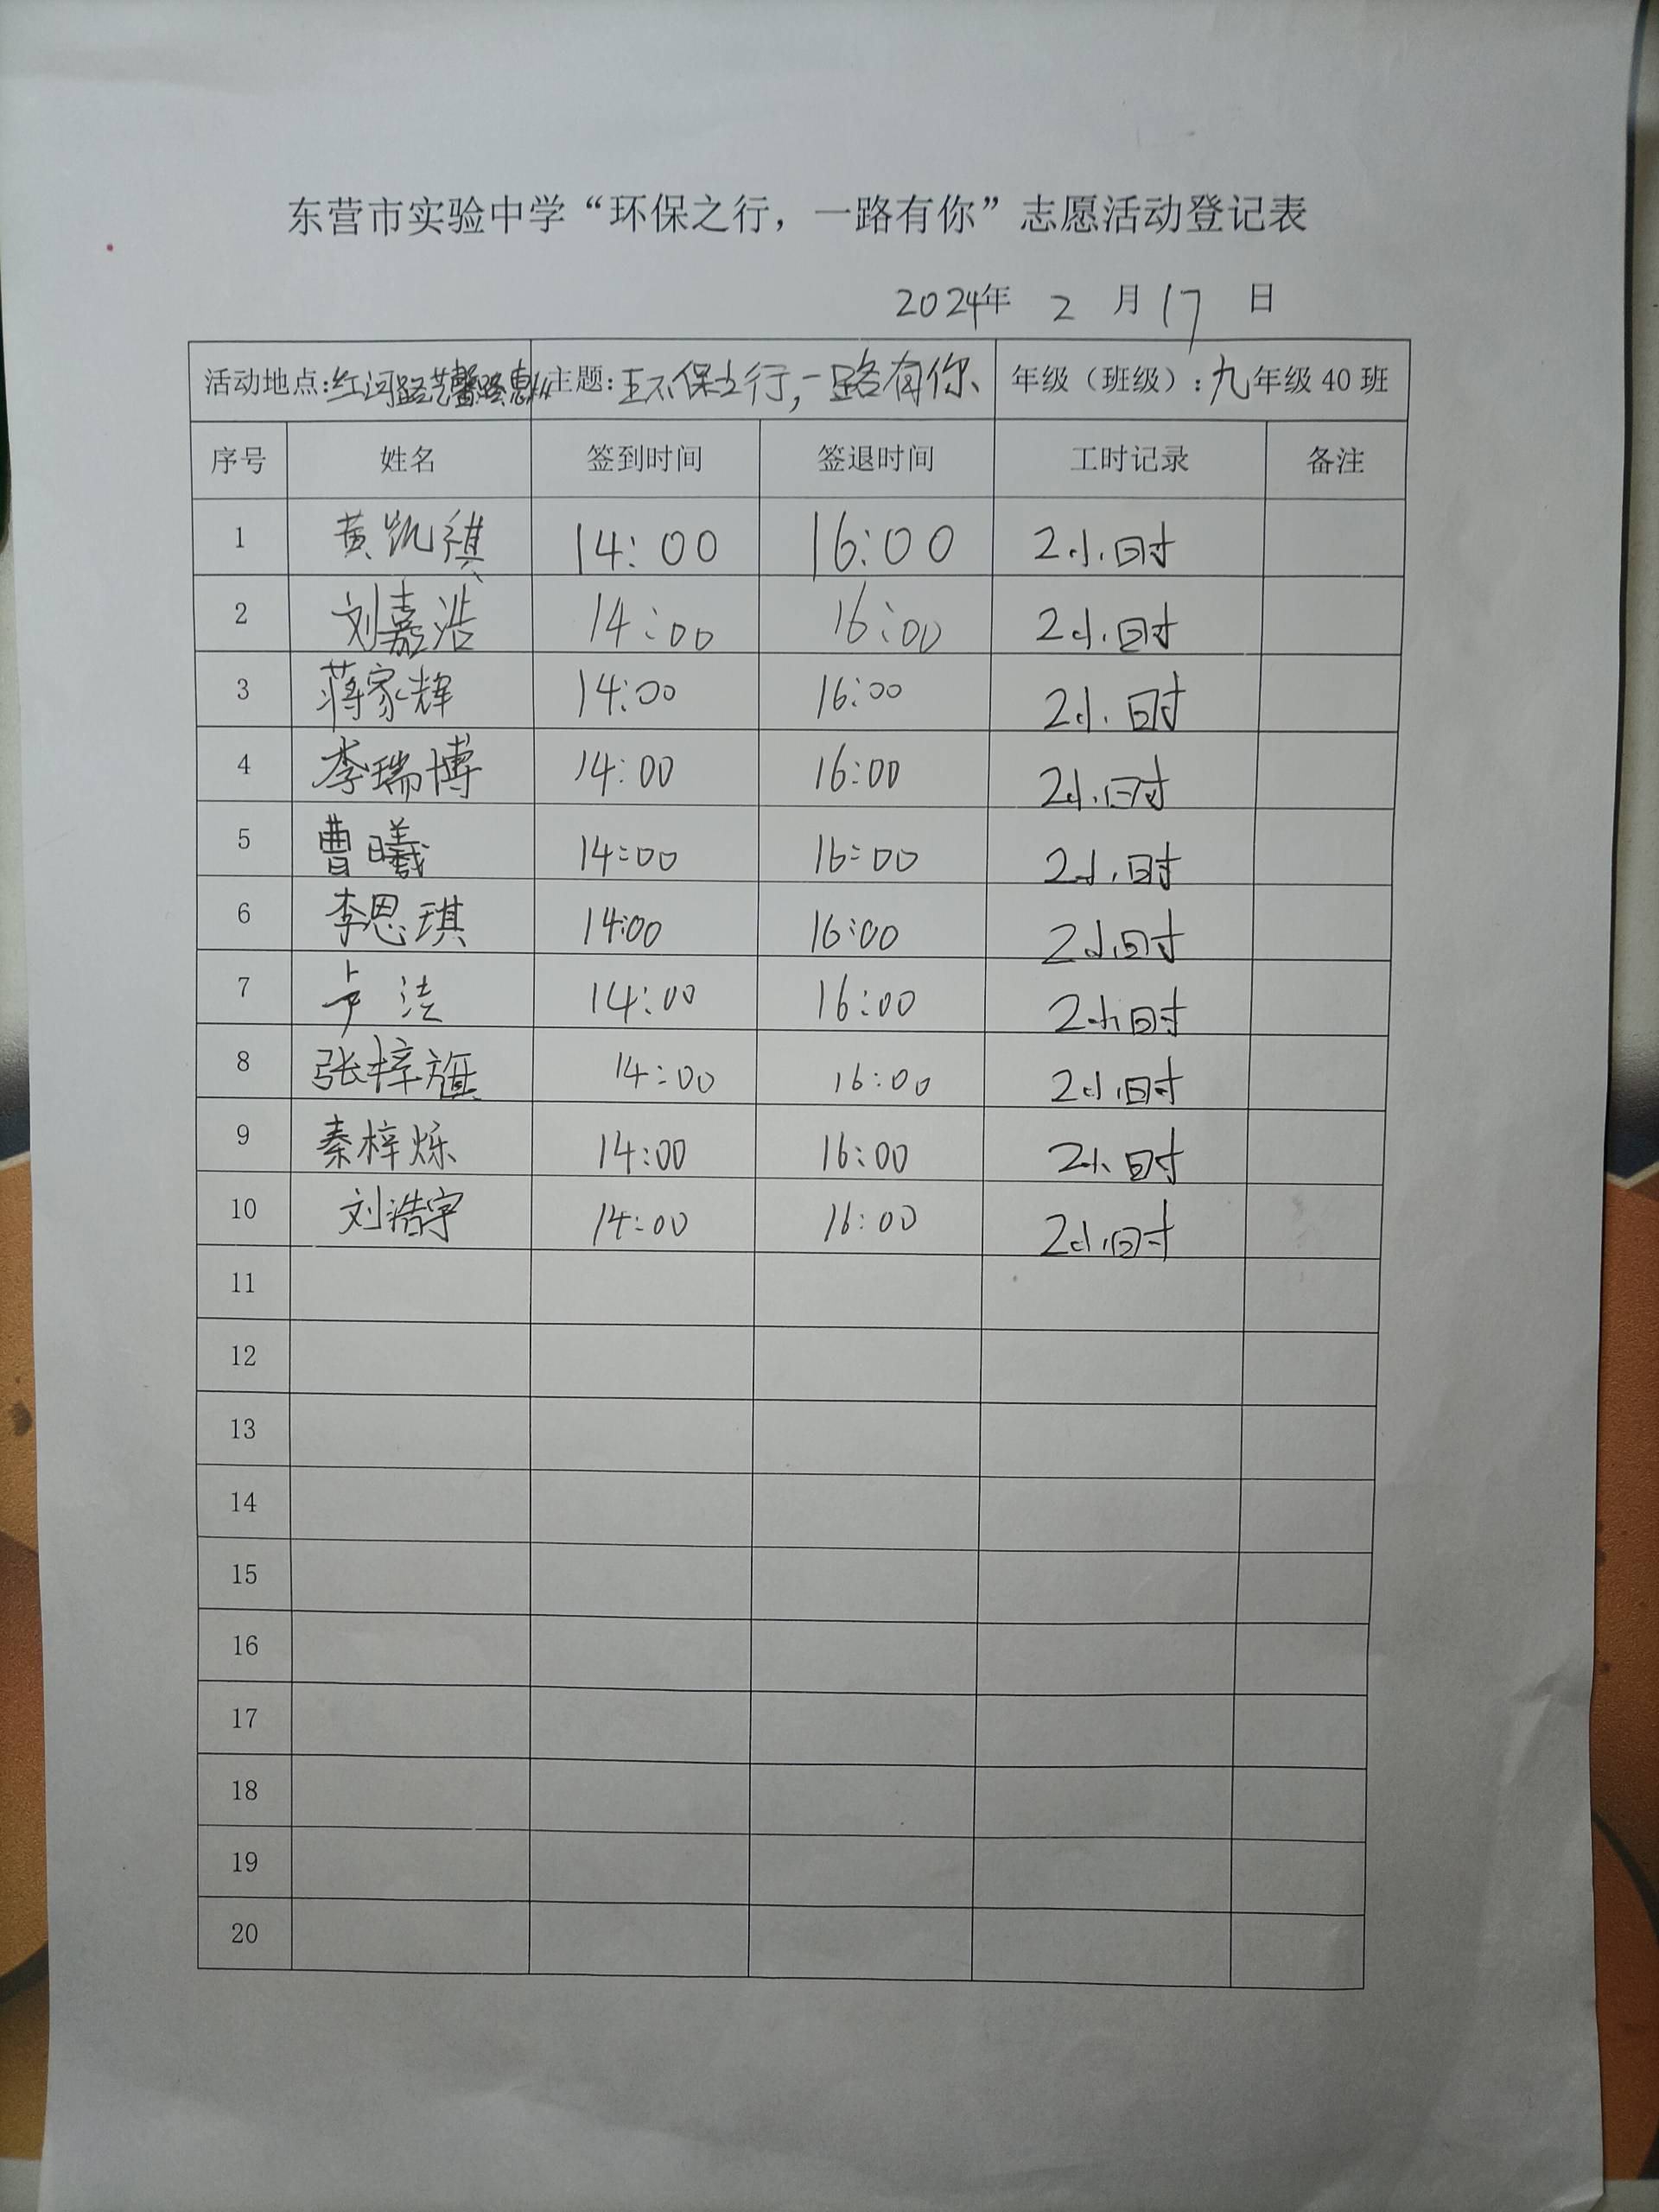 东营市实验中学“环保之行，一路有你”志愿活动登记表
2024年 2 月 17 日
活动地点：红河路艺馨路 主题：环保之行，一路有你 年级（班级）：九年级 40 班
序号 姓名 签到时间 签退时间 工时记录 备注
1 黄凯祺 14:00 16:00 2小时
2 刘嘉浩 14:00 16:00 2小时
3 蒋家辉 14:00 16:00 2小时
4 李瑞博 14:00 16:00 2小时
5 曹曦 14:00 16:00 2小时
6 李恩琪 14:00 16:00 2小时
7 14:00 16:00 2小时
8 张梓 14:00 16:00 2小时
9 秦梓烁 14:00 16:00 2小时
10 刘浩宇 14:00 16:00 2小时
11
12
13
14
15
16
17
18
19
20